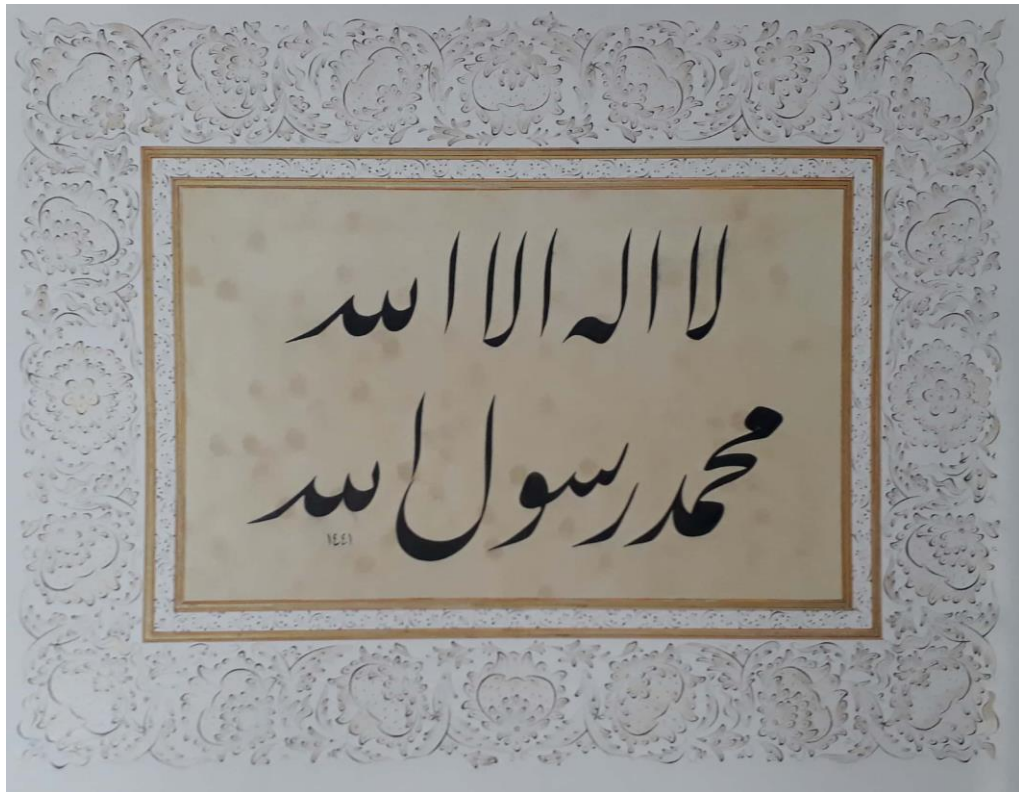 لا اله الا الله
محمد رسول الله
١٤٤١